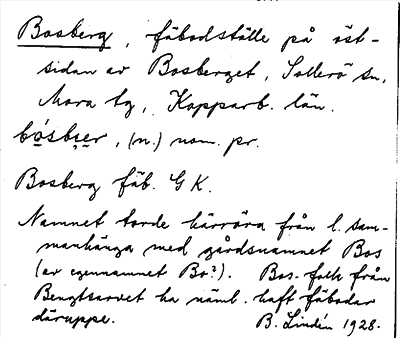 Bosberg, fäbodställe på öst-
sidan av Bosberget, Sollerö sn,
Mora tg, Kopparb. län.
bo̠sbær, (n.) nom. pr.
Bosberg fäb. G K.
Namnet torde härröra från l. sam-
manhänga med gårdsnamnet Bos
(av egennamnet Bo?). Bos-folk från
Bengtsarvet ha näml. haft fäbodar
däruppe. B. Lindén 1928.